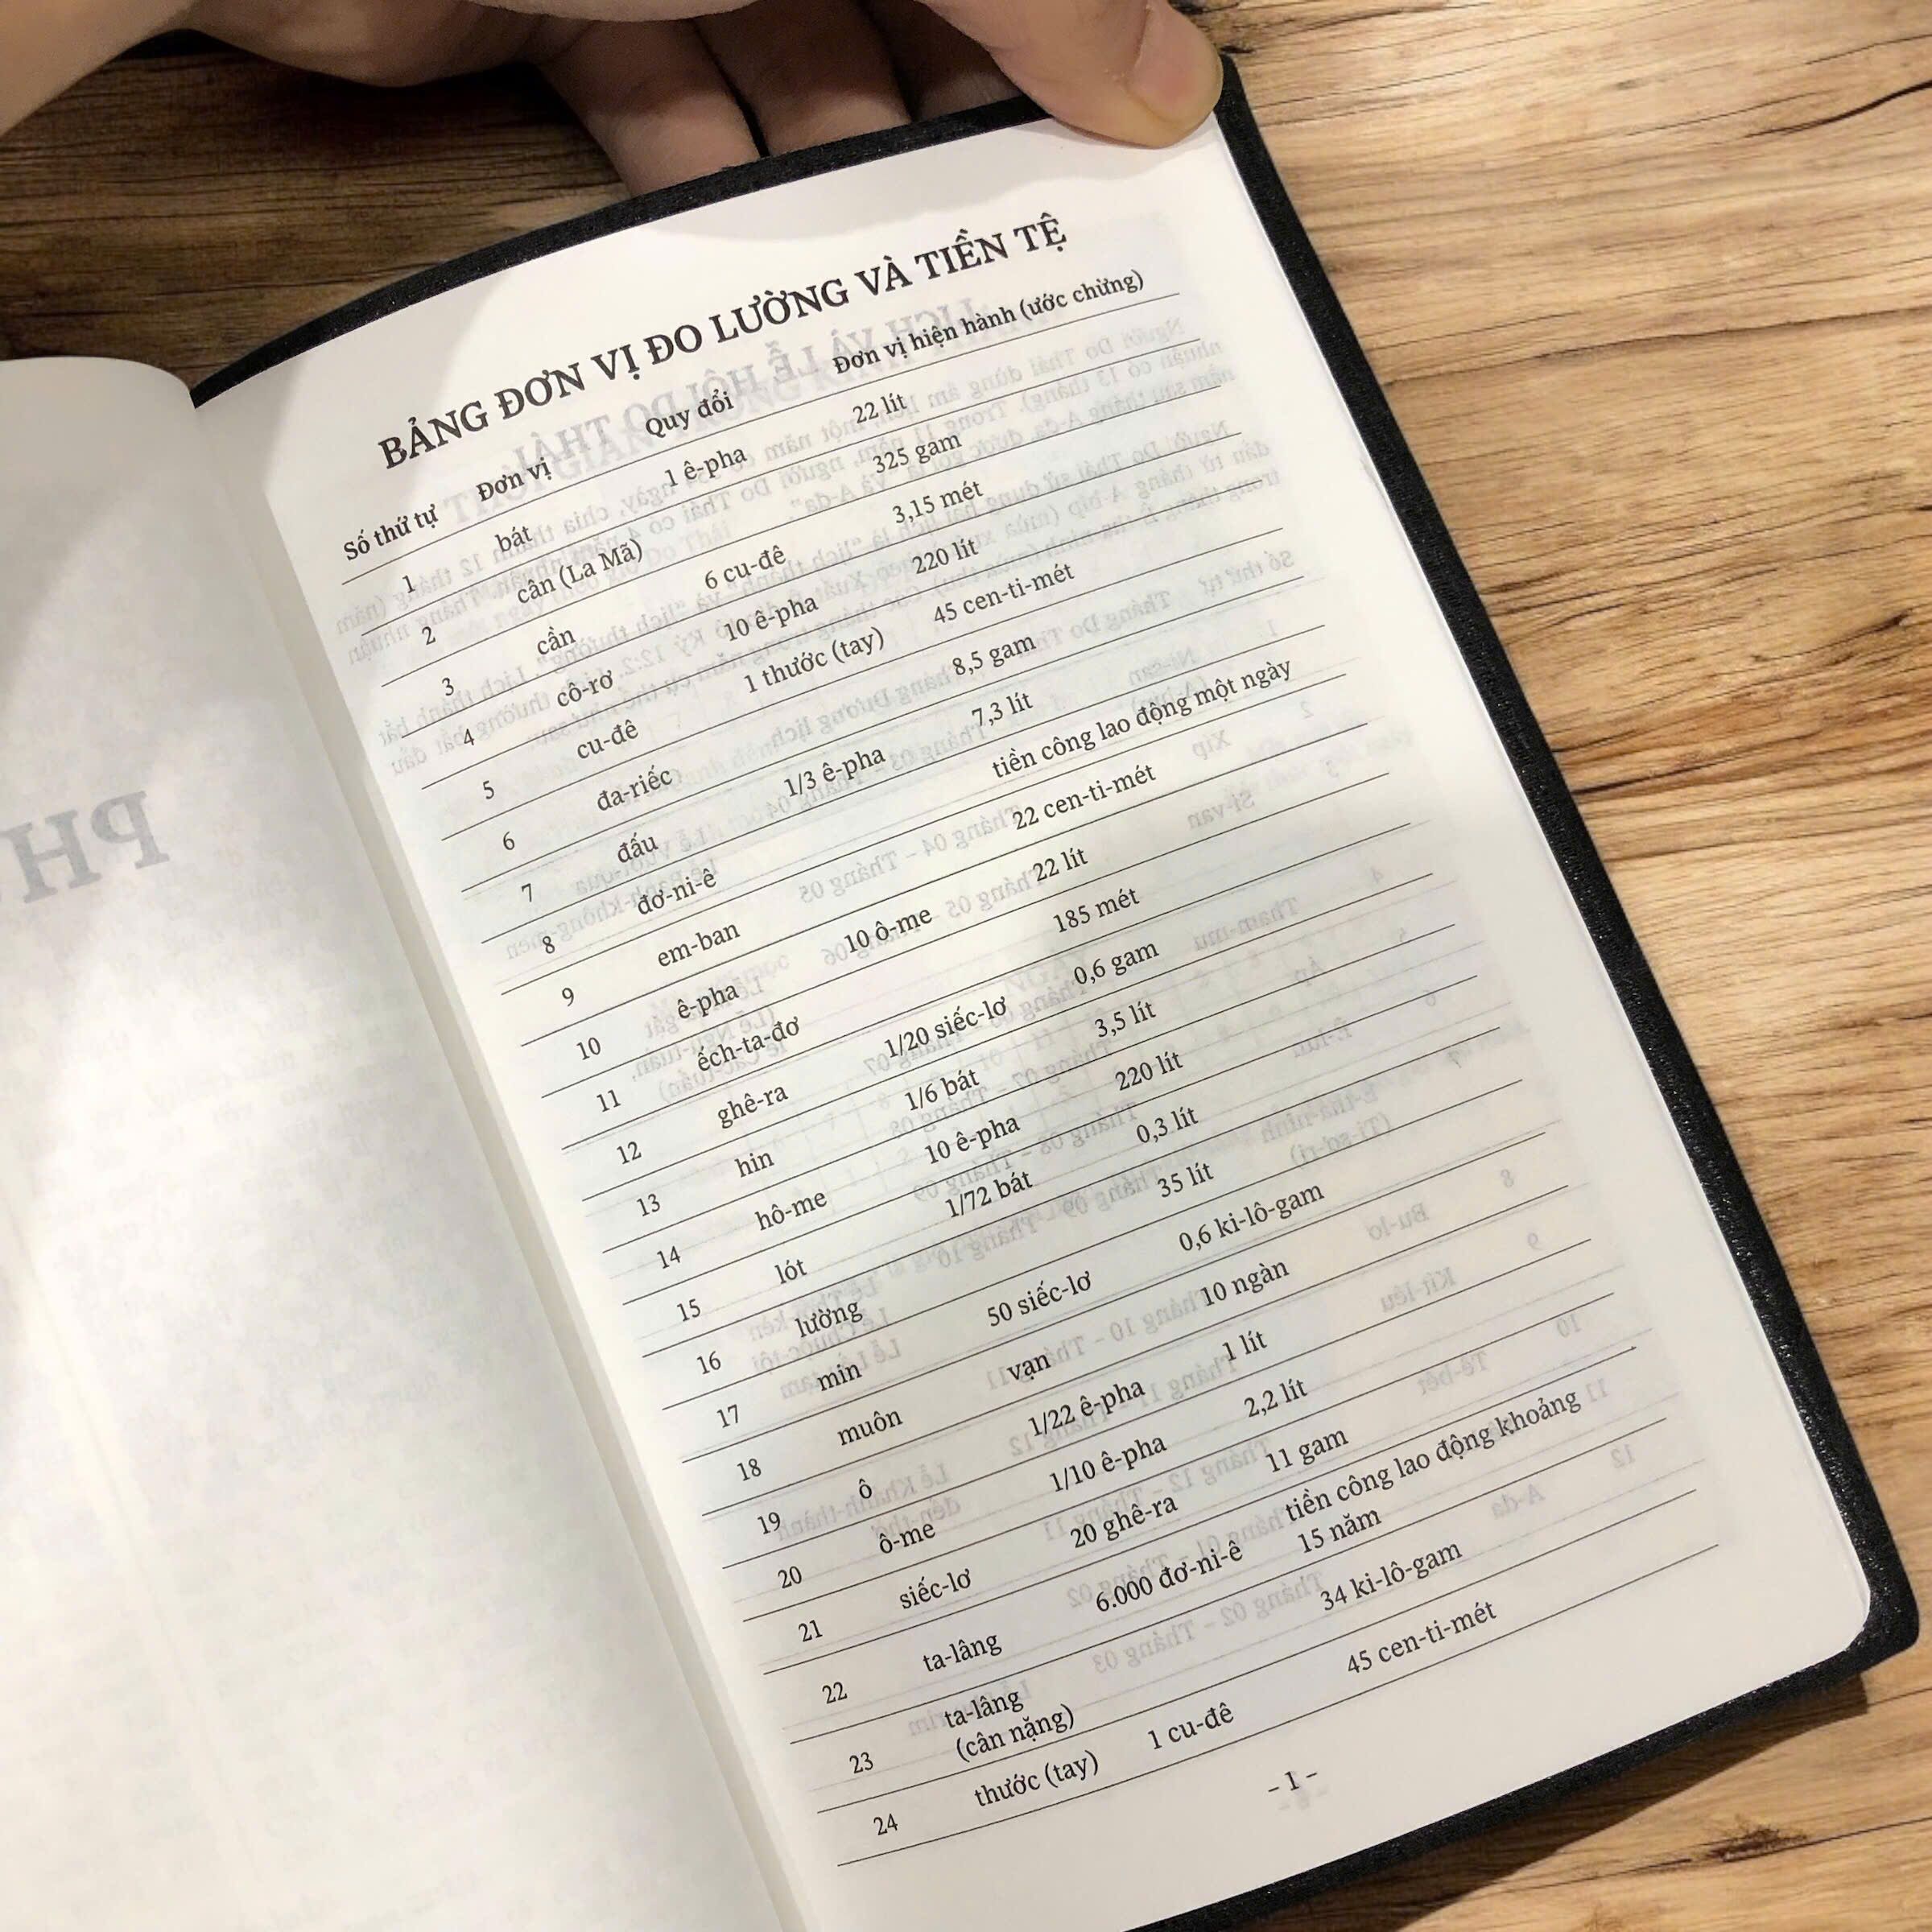 BẢNG ĐƠN VỊ ĐO LƯỜNG VÀ TIỀN TỆ
Số thứ tự Đơn vị Quy đổi Đơn vị hiện hành (ước chừng)
1 bát 1 ê-pha 22 lít
2 cân (La Mã) 325 gam
3 cần 6 cu-đê 3,15 mét
4 cô-rơ 10 ê-pha 220 lít
5 cu-đê 1 thước (tay) 45 cen-ti-mét
6 đa-riếc 8,5 gam
7 đấu 1/3 ê-pha 7,3 lít
8 đơ-ni-ê tiền công lao động một ngày
9 em-ban 22 cen-ti-mét
10 ê-pha 10 ô-me 22 lít
11 ếch-ta-đơ 185 mét
12 ghê-ra 1/20 siếc-lơ 0,6 gam
13 hin 1/6 bát 3,5 lít
14 hô-me 10 ê-pha 220 lít
15 lót 1/72 bát 0,3 lít
16 lường 35 lít
17 min 50 siếc-lơ 0,6 ki-lô-gam
18 muôn vạn 10 ngàn
19 ô 1/22 ê-pha 1 lít
20 ô-me 1/10 ê-pha 2,2 lít
21 siếc-lơ 20 ghê-ra 11 gam
22 ta-lâng 6.000 đơ-ni-ê tiền công lao động khoảng
15 năm
23 ta-lâng
(cân nặng) 34 ki-lô-gam
24 thước (tay) 1 cu-đê 45 cen-ti-mét
- 1 -